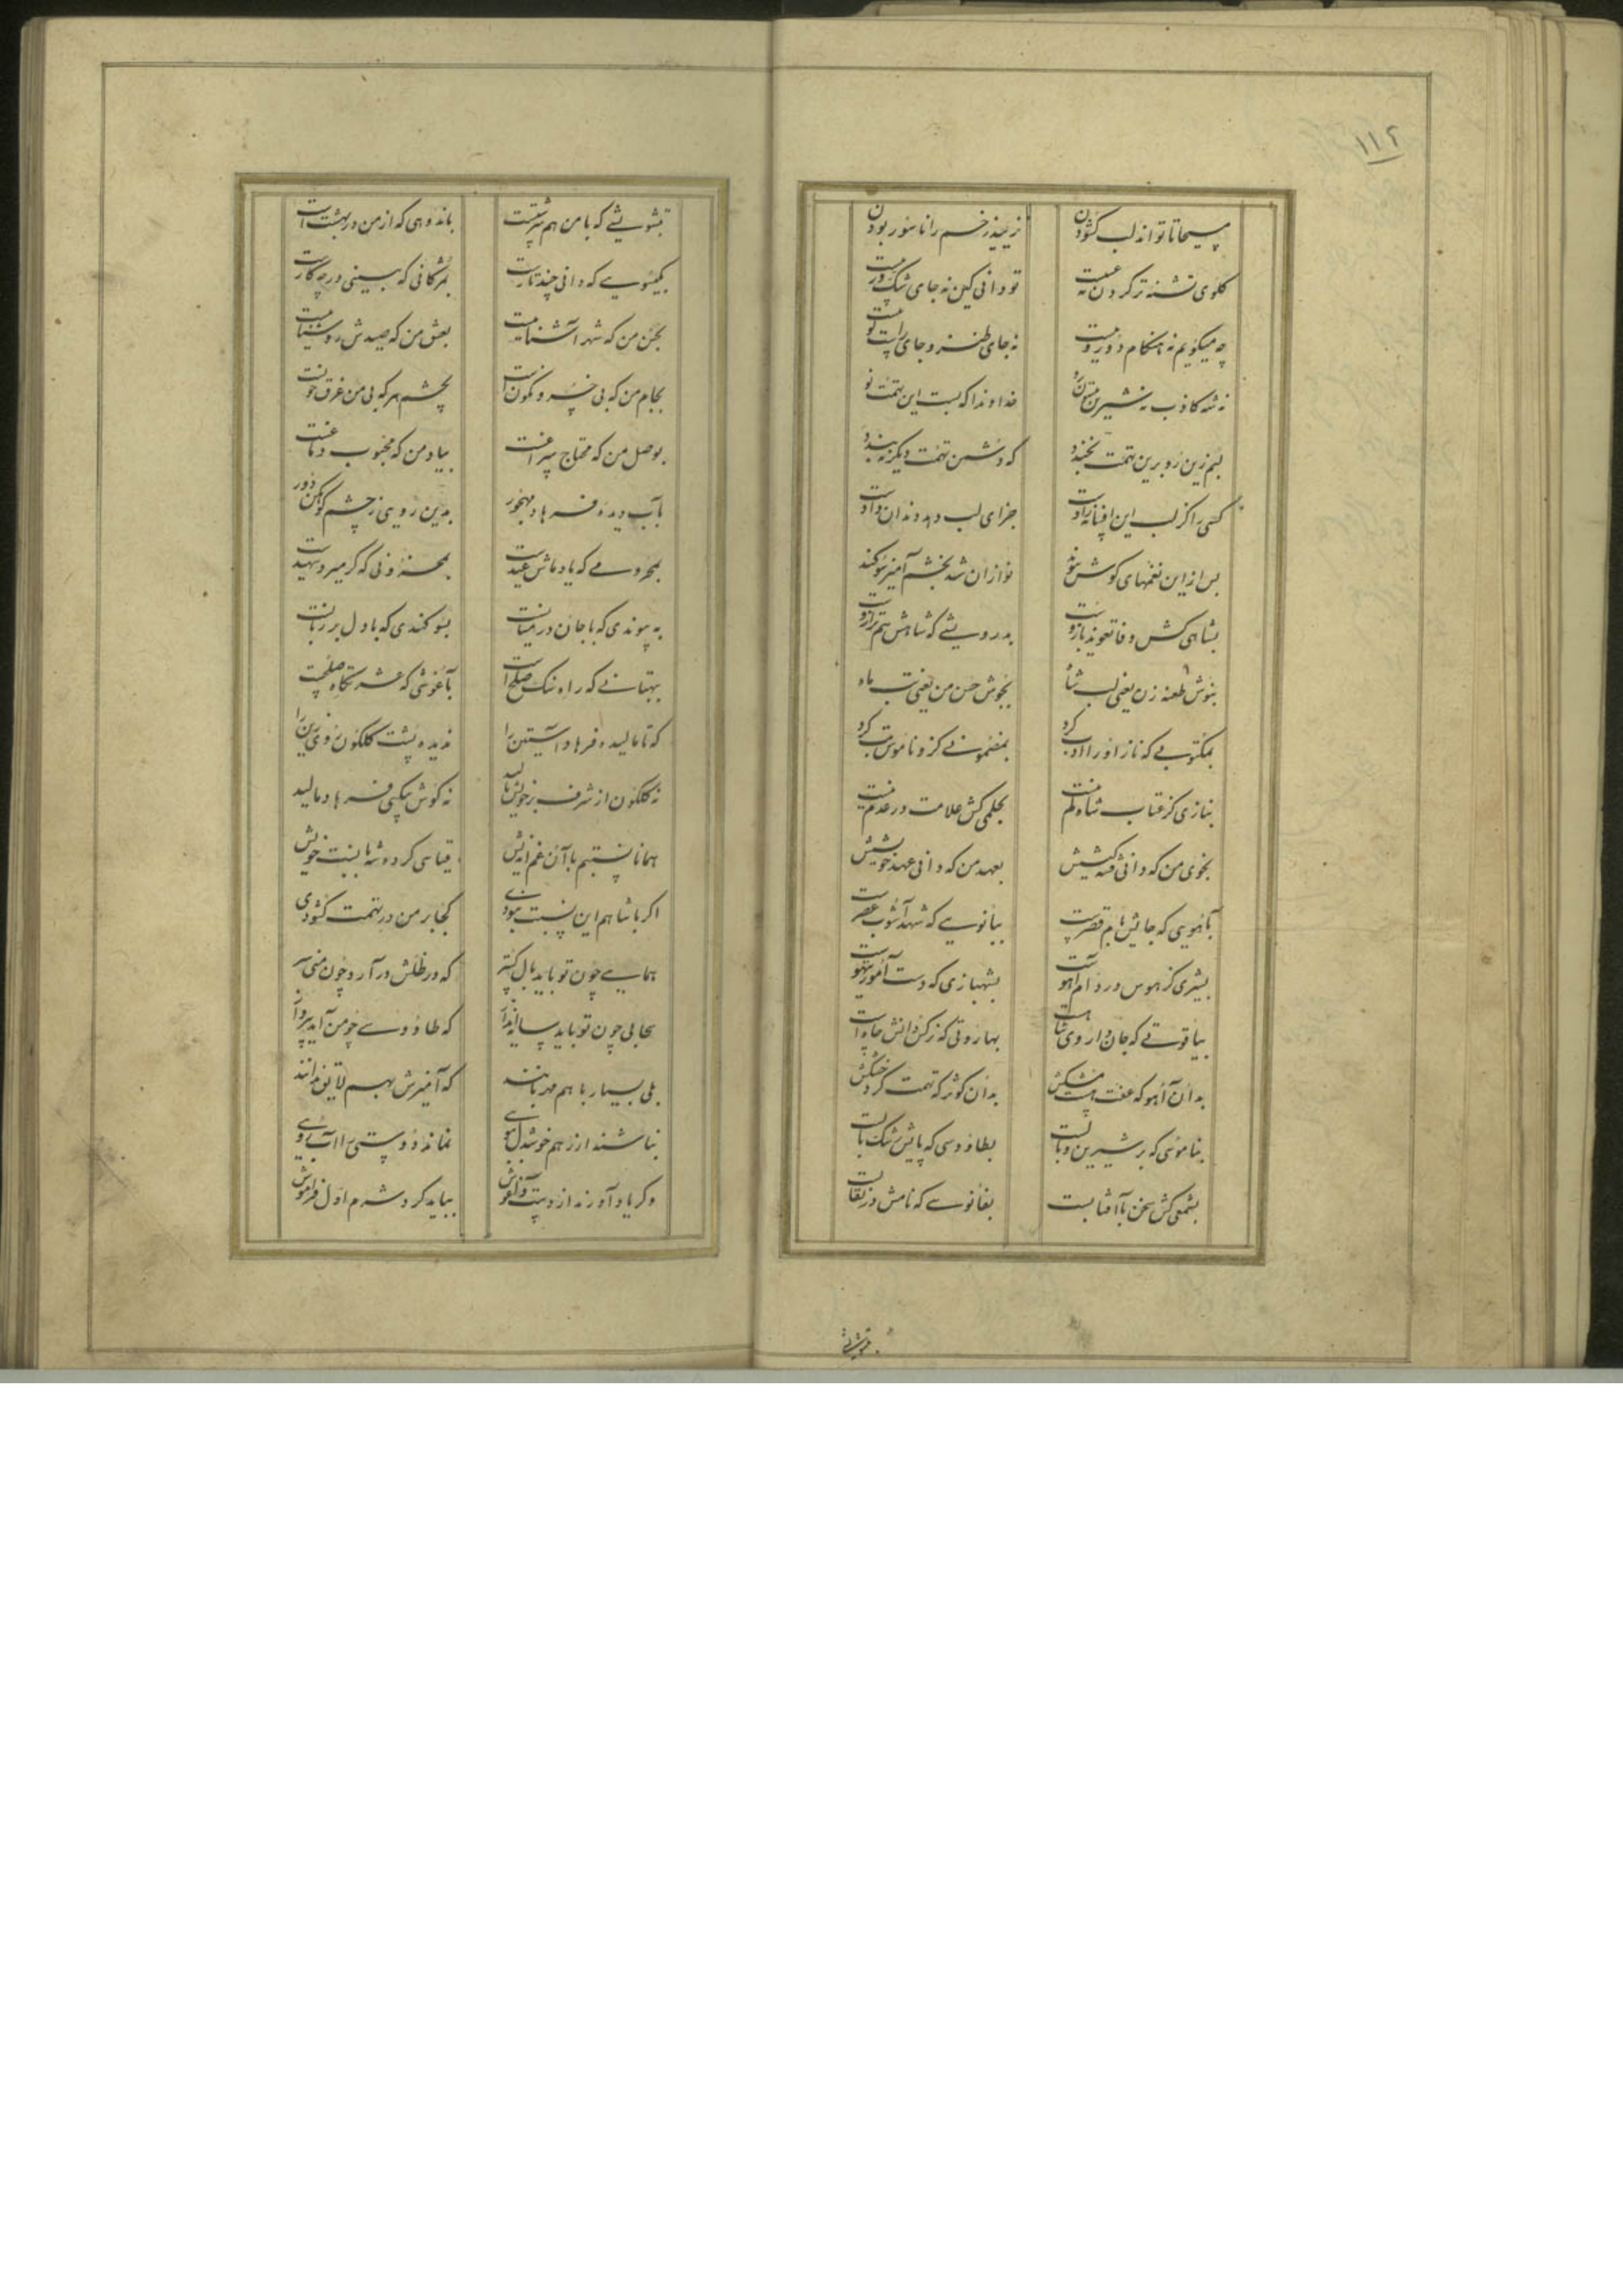 ۱۱۲
مسیحا تا تواند لب کشودن نزیبد زخم را ناسور بودن
کلوی تشنه تر کردن نه عیبست تو دانی کین نه جای شک و ریبست
چه میکویم نه هنکام دوروییست نه جای طنز و جای راست کوییست
نه شه کاذب نه شیرین خداوندا که بست این تهمت نو
لبم زین رو برین تهمت نخندد که دشمن تهمت دیکر نبندد
کسی را کز لب این افسانه زادست جزای لب دهد دندان
بس از این نغمهای کوش پیوند نواز آن شد بخشم آمیز سوکند
بشاهی کش وفا تعویذ بازوست بدرویشی که شاهش هم ترازوست
بنوش طعنه زن یعنی لب شاه بجوش حسن من یعنی تب ماه
بمکتوبی که ناز او را ادب کرد بمضمونی کزو ناموس تب کرد
بنازی کز عتاب شاه کم نیست بحلمی کش علامت در عدم نیست
بخوی من که دانی فتنه کیشش بعهد من که دانی عهد خویشش
بآهویی که جایش بام قصرست ببانویی که شهدآشوب عصرست
بشیری کز هوس در دام آهوست بشهبازی که دست آموز تیهوست
بیاقوتی که جان داروی شاهست بهاروتی که زرکن دانش چاهست
بدان آهو که عفت هست مشکش بدان کوثر که تهمت کرد خشکش
بناموسی که بر شیرین وبالست بطاووسی که پایش رشک بالست
بشمعی کش سخن با آفتابست بفانوسی که نامش در نقابست
بتشویشی که با من هم سرشتست باندوهی که از من در بهشت است
بکیسویی که دانی چند تارست بمژکانی که بینی در چه کارست
بحسن من که شهر آشناییست بعشق من که صیدش روشناییست
بجام من که بی خسرو نکون است بچشم هر که بی من غرق خونست
بوصل من که محتاج سراغست بیاد من که محبوب دماغست
بآب دیده فرهاد مهجور بدین رویی ز چشم کوهکن دور
بمحرومی که یاد ماش عیدست بمحزونی که کر میرد شهیدست
به پیوندی که با جان در میانست بسوکندی که با دل بر زبانست
ببهتانی که راه نیک صلح است بآغوشی که عشرتکاه صلحست
که تا مالیده فرهاد آستین را ندیده پشت کلکون روی زین را
نه کلکون از شرف بر خویش بالید نه کوش بیکسی فرهاد مالید
همانا نسبتم با آن غم اندیش قیاسی کرده شه با نسبت خویش
اکر با شاهم این نسبت نبودی کجا بر من در تهمت کشودی
همایی چون تو باید بال کستر که در ظلش درآرد چون منی سر
سحابی چون تو باید سایه انداز که طاووسی چو من آید بپرواز
بلی بسیار با هم مهربانند که آمیزش بهم لایق ندانند
نباشند ار ز هم خوشدل بمویی نماند دوستی را آب رویی
وکر یاد آورند از دست و آغوش بباید کرد شرم اول فراموش